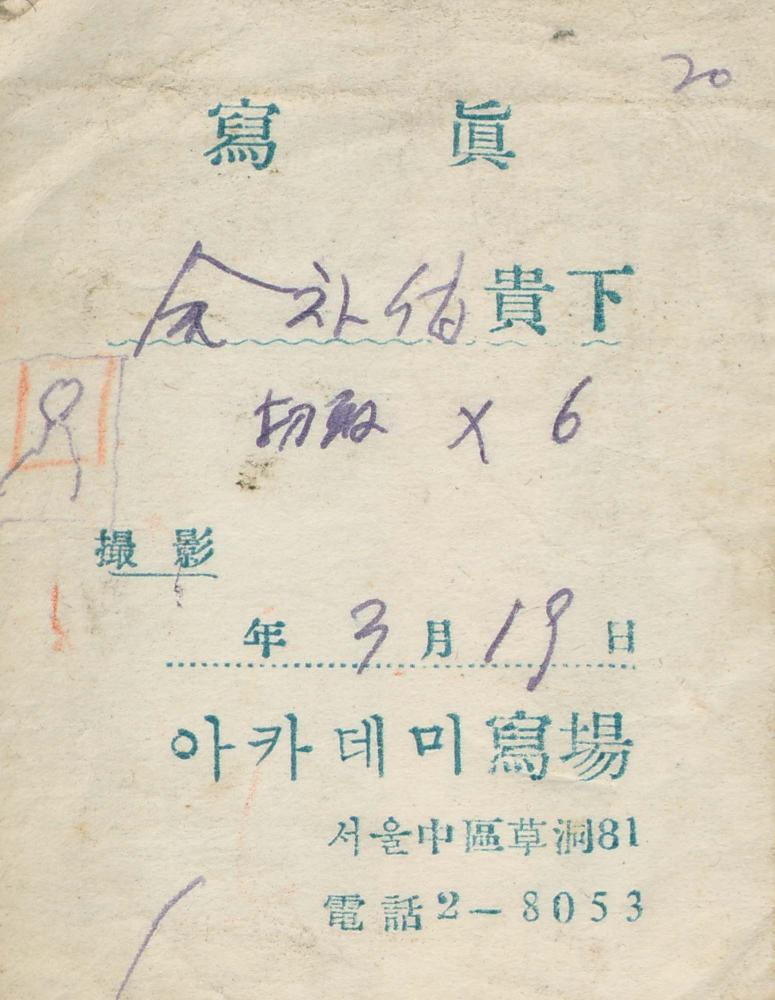 20
寫眞
貴下
切取 × 6
撮影
年 3 月 19 日
아카데미寫場
서울中區草洞81
電話2-8053